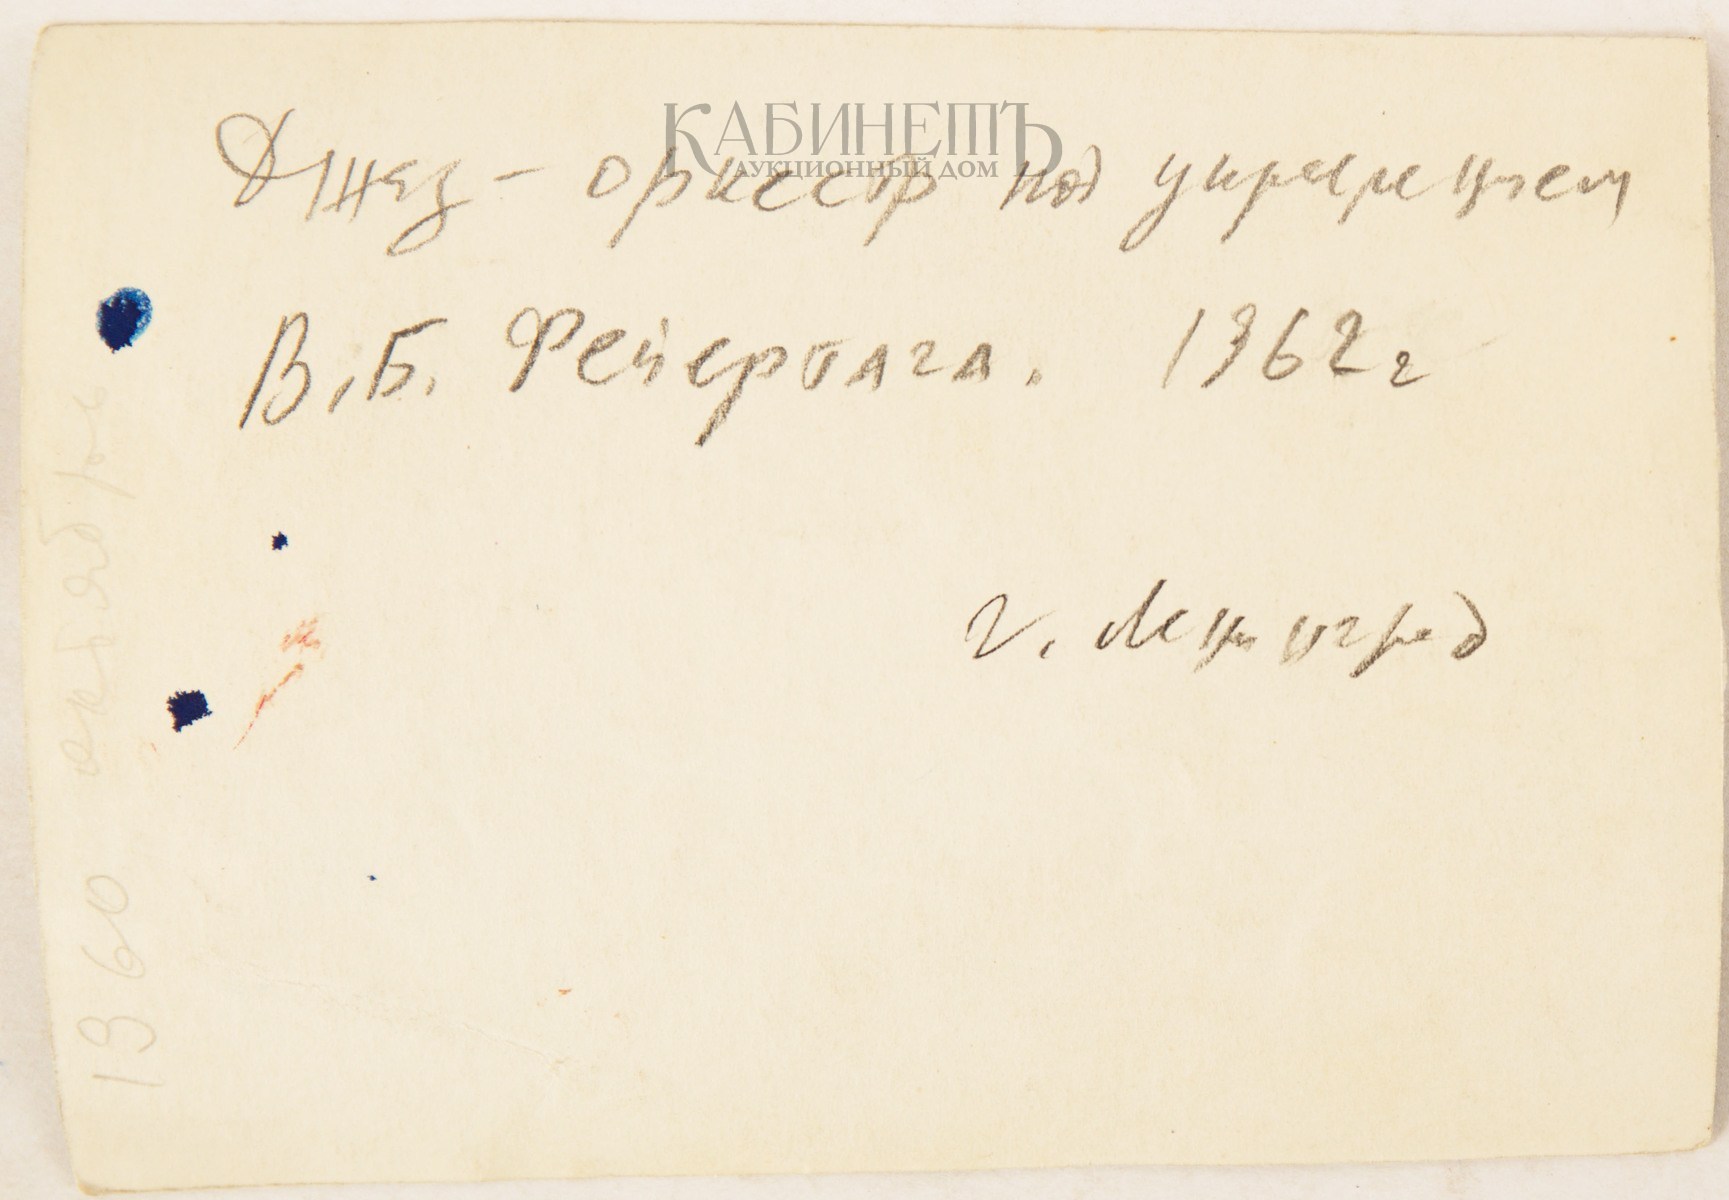 КАБИНЕТЪ
АУКЦИОННЫЙ ДОМ
Джаз - оркестр под управлением
В.Б. Фейертага. 1962 г
г. Ленинград
1960 октябрь